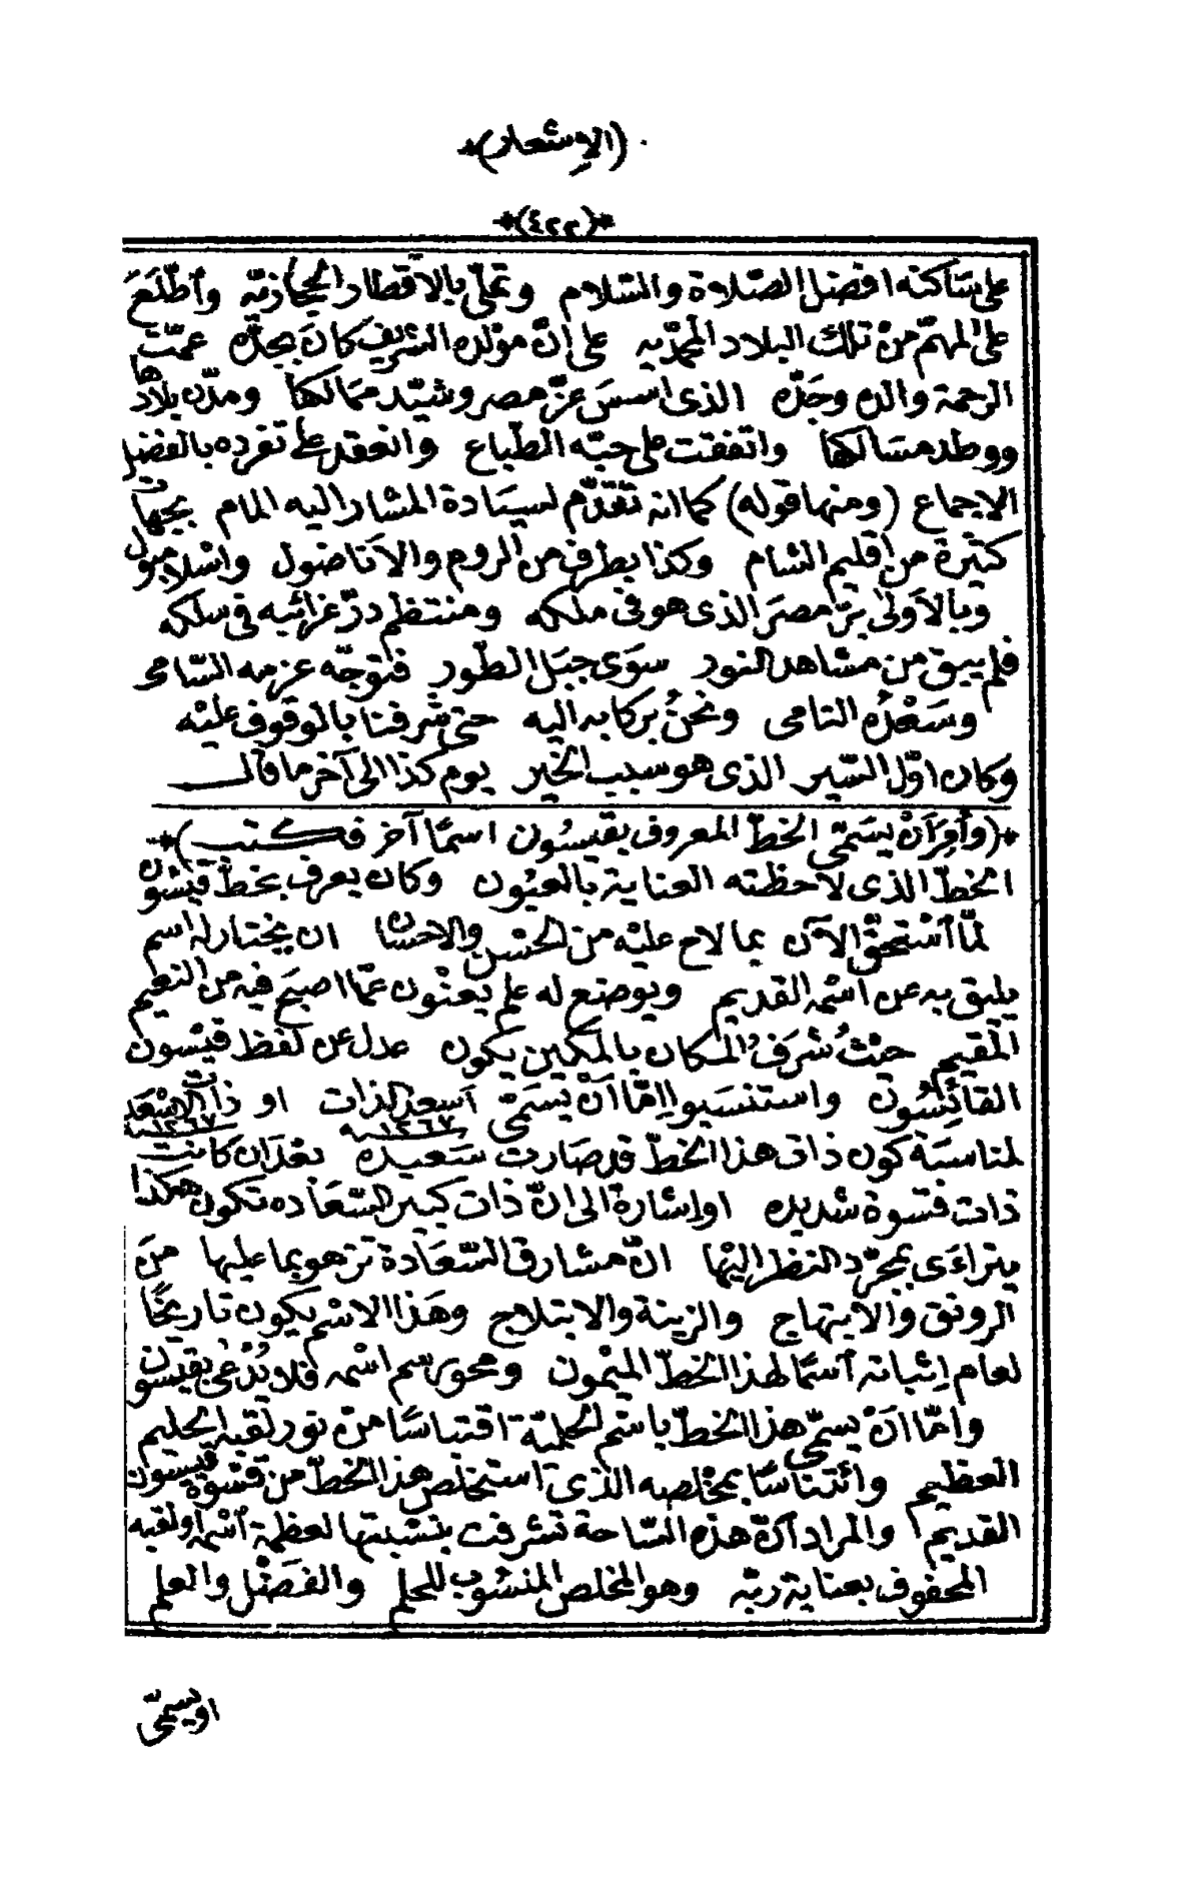 (الإشعار)*
*(٤٢٢)*
على ساكنه افضل الصّلاة والسّلام وتملّى بالأقطار الحجازيّه وأطّلَعَ
على المهمّ من تلك البلاد المحمّديه على انّ مؤلده الشريف كانَ بجدّه عمّت
الرحمة والده وجَدّه الذى اسسَ عزّ مصر وشيّد ممَالكها ومدّن بلادها
ووطد مسَالكها واتفقت على حبّه الطّباع وانعقد على تفرده بالفضل
الاجماع (ومنها قوله) كما انه تقدّم لسيَادة المشار اليه المام بجهات
كثيرة من اقليم الشام وكذا بطرف من الروم والاناضول واسلامبول
وبالاولى برّ مصرَ الذى هو فى ملكه ومنتظم درّ غرائبه فى سلكه
فلم يبق من مشاهد النور سوَى جبَل الطّور فتوجّه عزمه السّامى
وسَعْدُه النامى ونحنُ بركابه اليه حتى شرفنا بالوقوف عليْه
وكان اوّل السّير الذى هو سبب الخير يوم كذا الى آخر ما قال
*(وأمرَ أنْ يسَمّى الخطّ المعروف بقيسُون اسمًا آخر فكتب)*
الخطّ الذى لاحظته العناية بالعيُون وكان يعرف بخطّ قيسُون
لمّا استحقّ الآن بما لاح عليْه من الحسْن والاحسَان ان يختار له اسم
يليق به عن اسْمه القديم ويوضع له علم يعنْون عمّا اصبحَ فيه من النعيم
المقيم حيْثُ شرَفُ المكان بالمكين يكون عدل عن لفظ قيْسون
القائِسُون واستنسَبوا إمّا أنْ يسَمّى أسعد الذات او ذات الاسْعَد
١٢٦٧ سنه ١٢٦٧ سنه
لمناسَبَة كون ذات هذا الخطّ قد صَارت سَعيده بعْدَ ان كانت
ذات قسْوة شديده او اشارة الى انّ ذات كبير السّعَاده تكون هكذا
يتراءَى بمجرّد النظر اليْها انّ مشارق السّعَادة تزهو بما عليها منَ
الرونق والابتهاج والزينة والابتلاج وهَذا الاسْم يكون تاريخًا
لعام اِثباته أسمًا لهذا الخطّ الميْمون ومحو رسم اسْمه فلا يُدْعَى بقيسُون
وامّا انْ يسمّى هذا الخطّ باسْم الحلميّة اقتباسًا منْ نور لقبه الحليم
العظيم وائتناسًا بمخْلصه الذى استخلص هذا الخطّ من قسْوة قيْسون
القديم والمراد أنّ هذه السّاحة تشرفت بنسْبتها لعظمة اسْمه او لقبه
المحفوف بعناية ربّه وهو المخلص المنسُوب للحلم والفضْل والعلم
اويسمّى